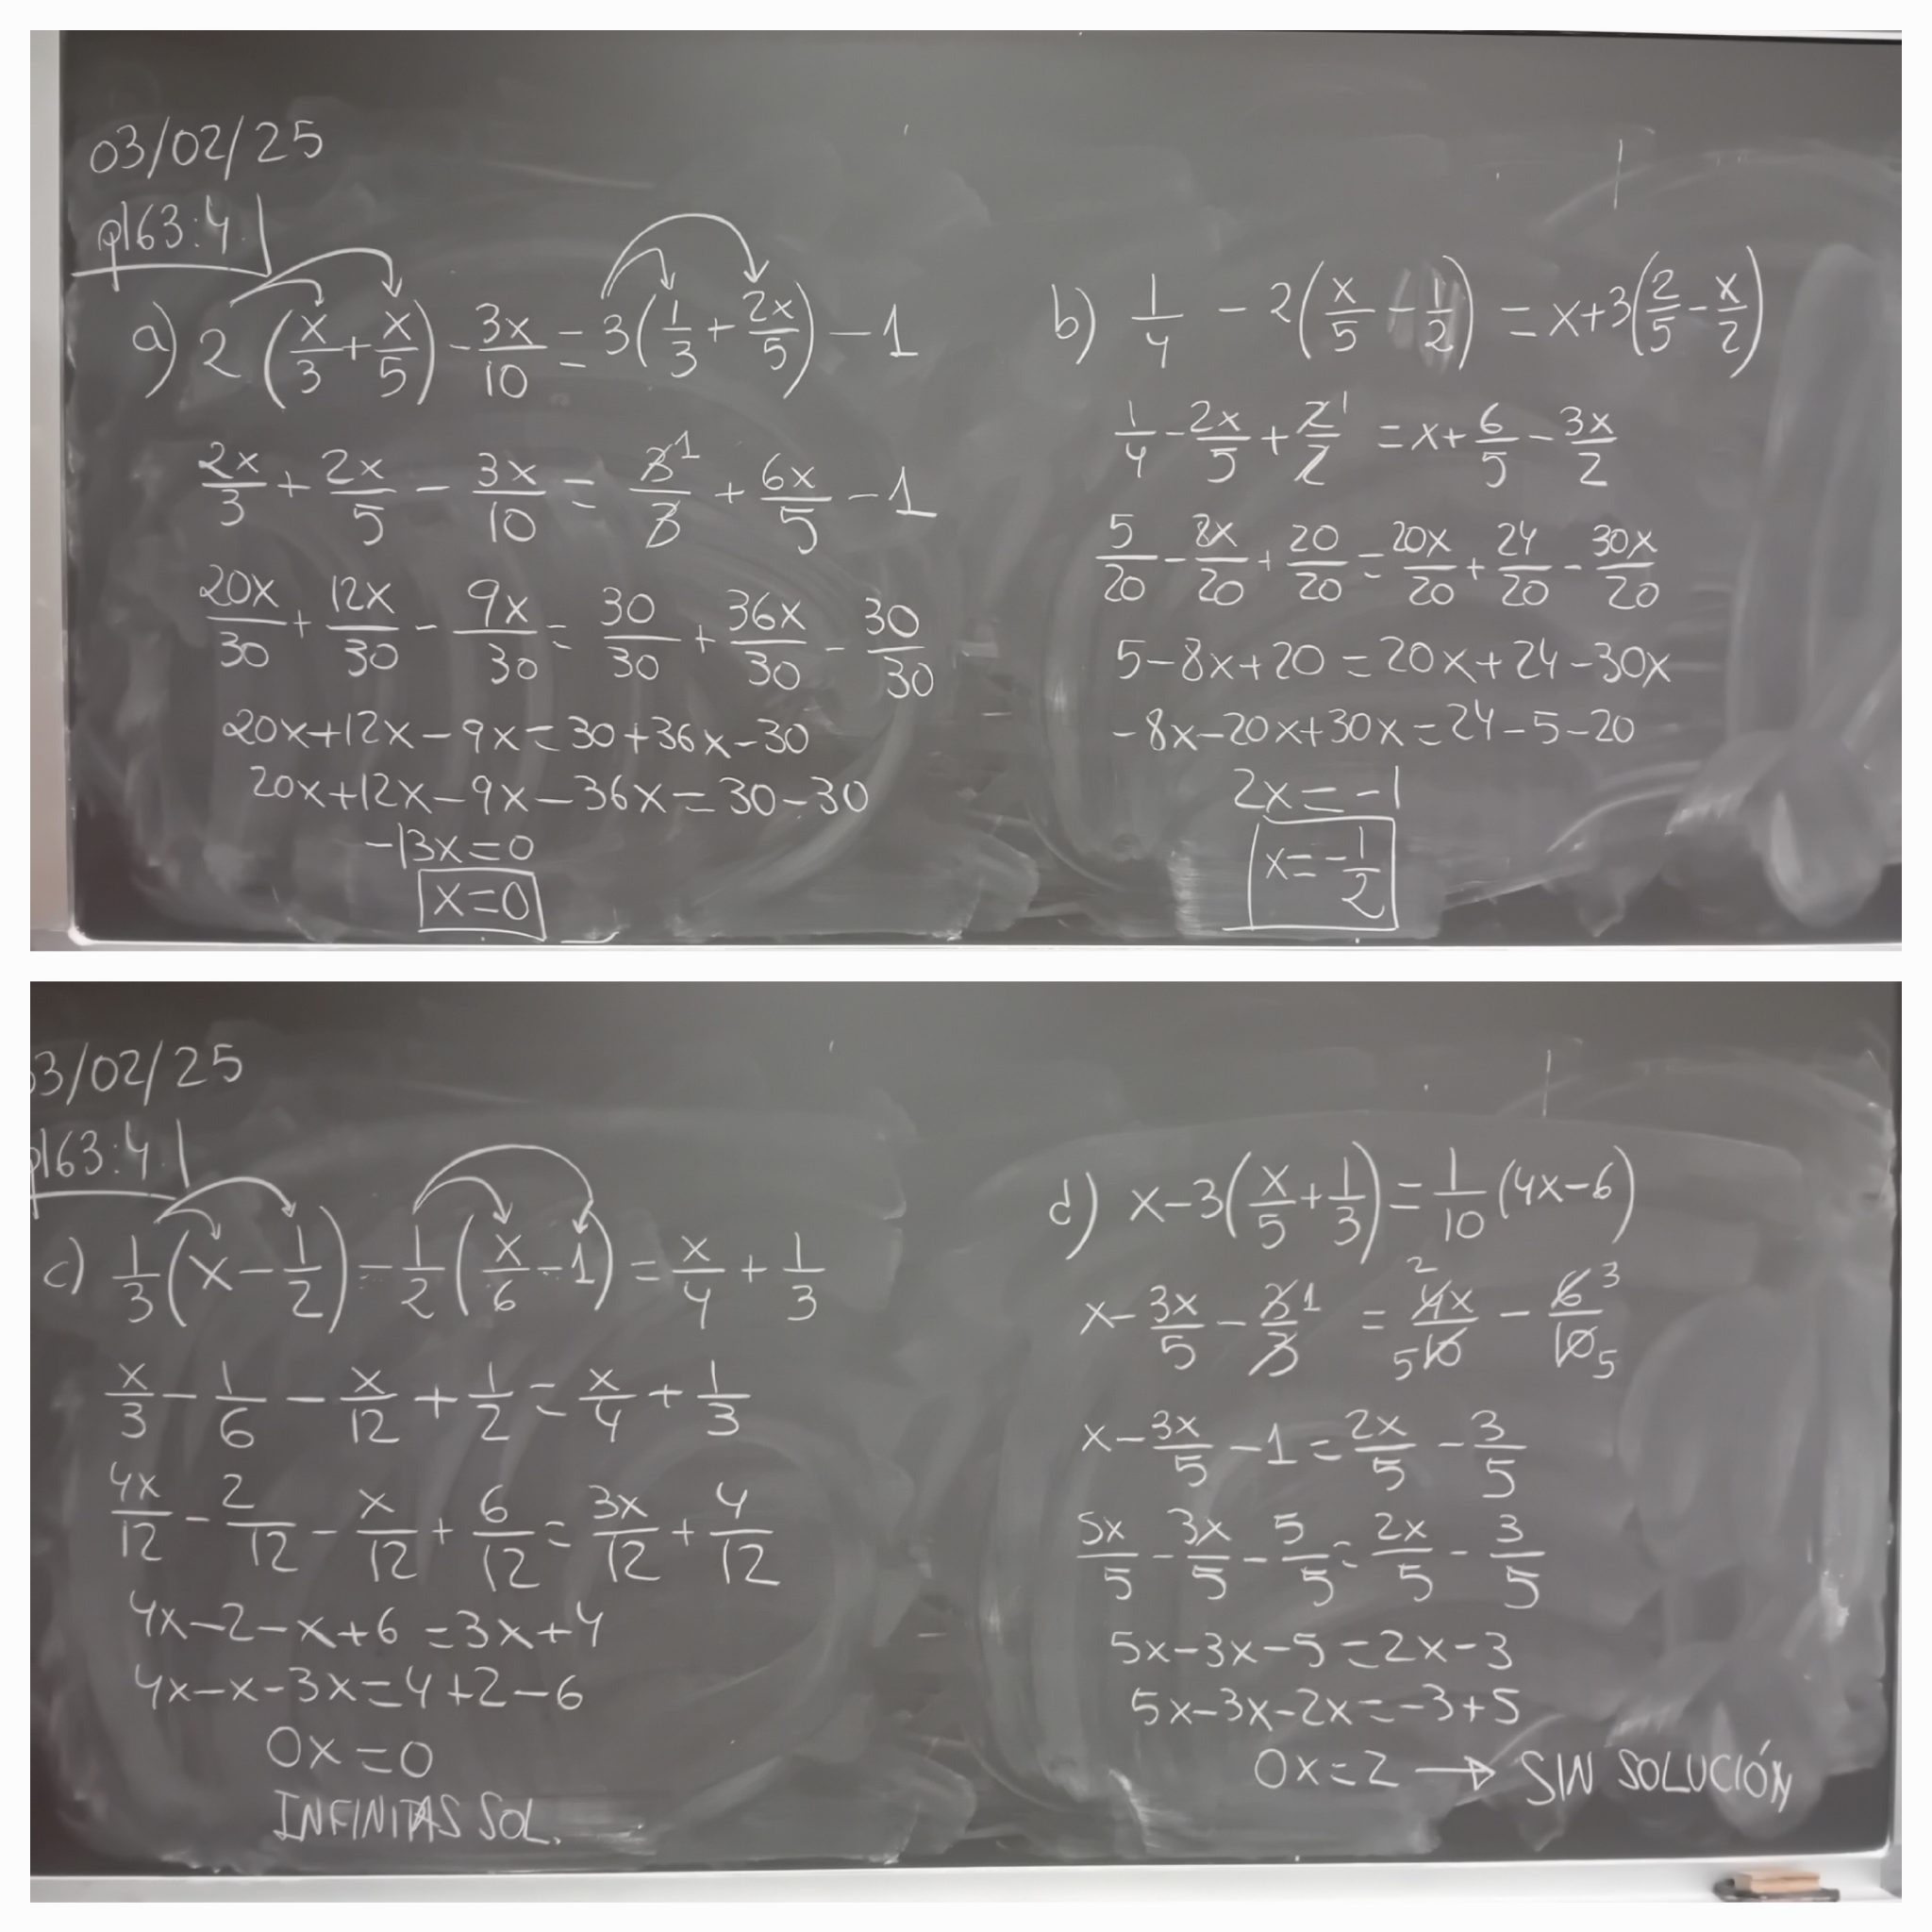 03/02/25
p163:4
a) 2(x/3 + x/5) - 3x/10 = 3(1/3 + 2x/5) - 1
2x/3 + 2x/5 - 3x/10 = 3/3 1 + 6x/5 - 1
20x/30 + 12x/30 - 9x/30 = 30/30 + 36x/30 - 30/30
20x+12x-9x=30+36x-30
20x+12x-9x-36x=30-30
-13x=0
x=0
b) 1/4 - 2(x/5 - 1/2) = x+3(2/5 - x/2)
1/4 - 2x/5 + 2/2 1 = x + 6/5 - 3x/2
5/20 - 8x/20 + 20/20 = 20x/20 + 24/20 - 30x/20
5-8x+20=20x+24-30x
-8x-20x+30x=24-5-20
2x=-1
x=-1/2
3/02/25
p163:4
c) 1/3(x - 1/2) - 1/2(x/6 - 1) = x/4 + 1/3
x/3 - 1/6 - x/12 + 1/2 = x/4 + 1/3
4x/12 - 2/12 - x/12 + 6/12 = 3x/12 + 4/12
4x-2-x+6=3x+4
4x-x-3x=4+2-6
0x=0
INFINITAS SOL.
d) x-3(x/5 + 1/3) = 1/10 (4x-6)
x - 3x/5 - 3/3 1 = 2 4x/10 5 - 6/10 3 5
x - 3x/5 - 1 = 2x/5 - 3/5
5x/5 - 3x/5 - 5/5 = 2x/5 - 3/5
5x-3x-5=2x-3
5x-3x-2x=-3+5
0x=2 → SIN SOLUCIÓN